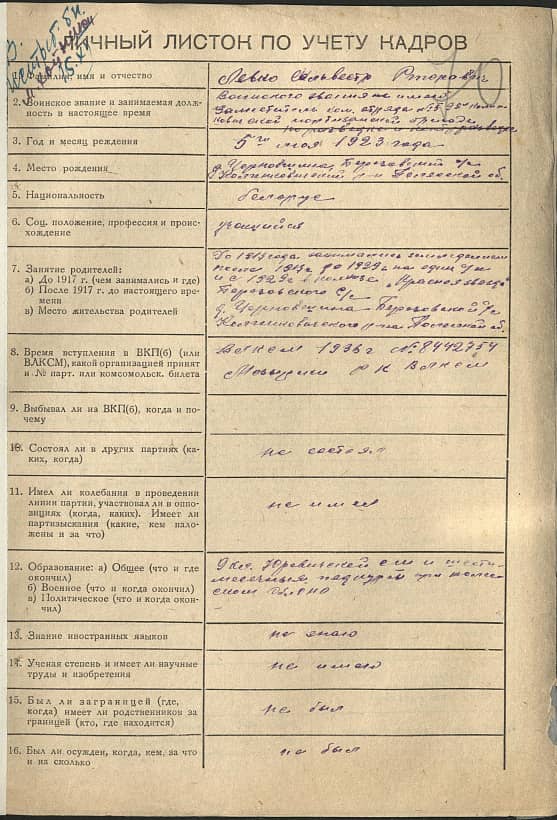 ЛИЧНЫЙ ЛИСТОК ПО УЧЕТУ КАДРОВ
1. Фамилия, имя и отчество
Левко Сильвестр
2. Воинское звание и занимаемая долж-
ность в настоящее время
Воинского звания не имею
Заместитель ком. отряда
партизанской бригады
по разведке и контрразведке
3. Год и месяц рождения
5го мая 1923 года
4. Место рождения
д. Черновщина Березовский с/с
5. Национальность
беларус
6. Соц. положение, профессия и проис-
хождение
учащийся
7. Занятие родителей:
а) До 1917 г. (чем занимались и где)
б) После 1917 г. до настоящего вре-
мени
в) Место жительства родителей
До 1917 года занимались земледелием
после 1917г. до 1929г.
и с 1929г. в колхозе „Красная звезда"
Березовского с/с
д. Черновщина Березовский с/с
8. Время вступления в ВКП(б) (или
ВЛКСМ), какой организацией принят
и № парт. или комсомольск. билета
1936 г. № 8442754
РК
9. Выбывал ли из ВКП(б), когда и по-
чему
10. Состоял ли в других партиях (ка-
ких, когда)
не состоял
11. Имел ли колебания в проведении
линии партии, участвовал ли в оппо-
зициях (когда, каких). Имеет ли
партвзыскания (какие, кем нало-
жены и за что)
не имел
12. Образование: а) Общее (что и где
окончил)
б) Военное (что и когда окончил)
в) Политическое (что и когда окон-
чил)
9 кл. Юревичской с ш и шести-
месячные педкурсы при
13. Знание иностранных языков
не знаю
14. Ученая степень и имеет ли научные
труды и изобретения
не имею
15. Был ли заграницей (где,
когда) имеет ли родственников за
границей (кто, где находится)
не был
16. Был ли осужден, когда, кем, за что
и на сколько
не был